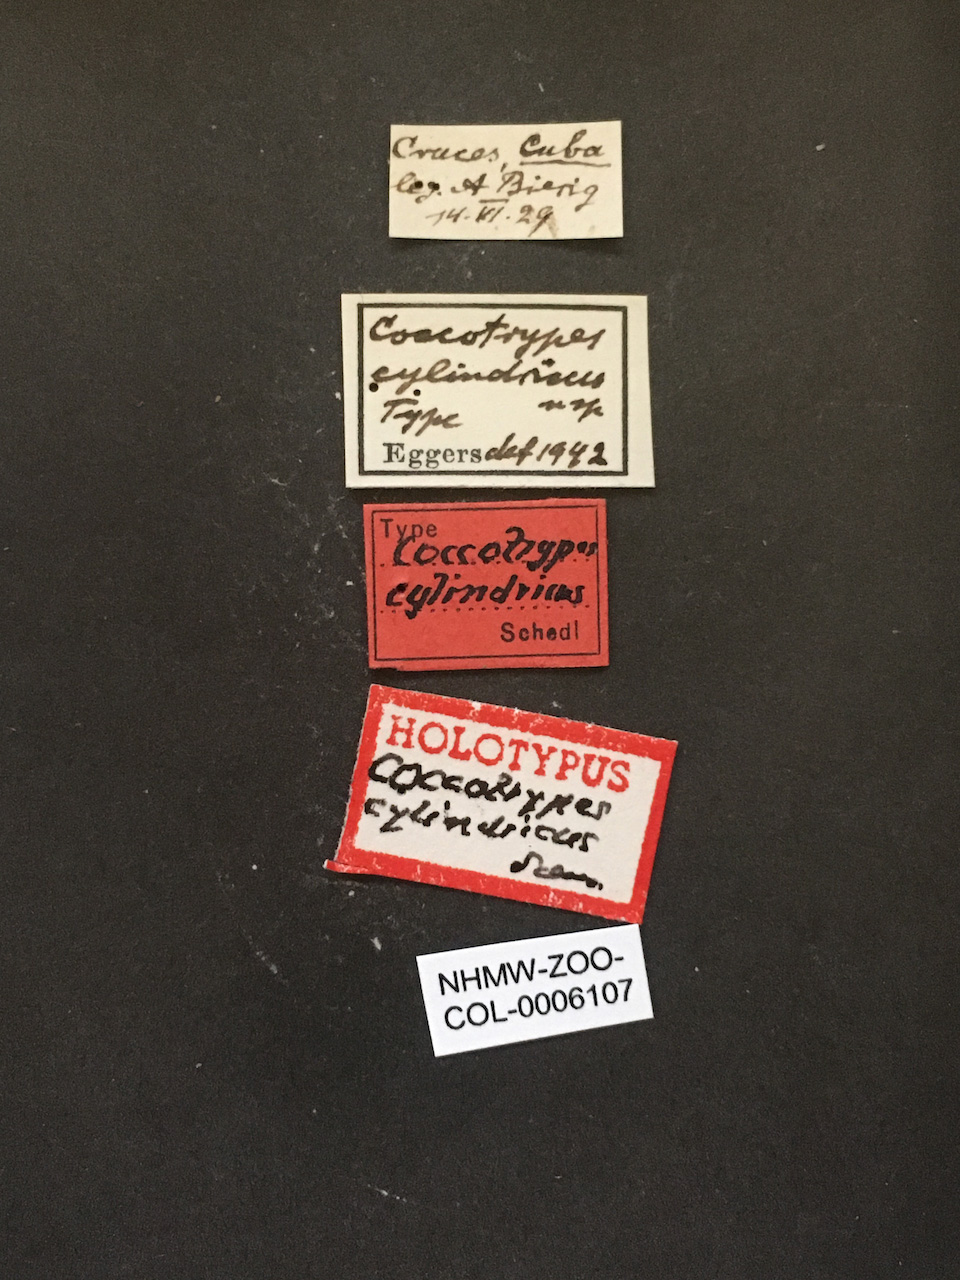 Cruces, Cuba
leg. A Bierig
14.VI.29
Coccotrypes
cylindricus
Type n sp
Eggers det 1942
Type
Coccotrypes
cylindricus
Schedl
HOLOTYPUS
Coccotrypes
cylindricus
NHMW-ZOO-
COL-0006107